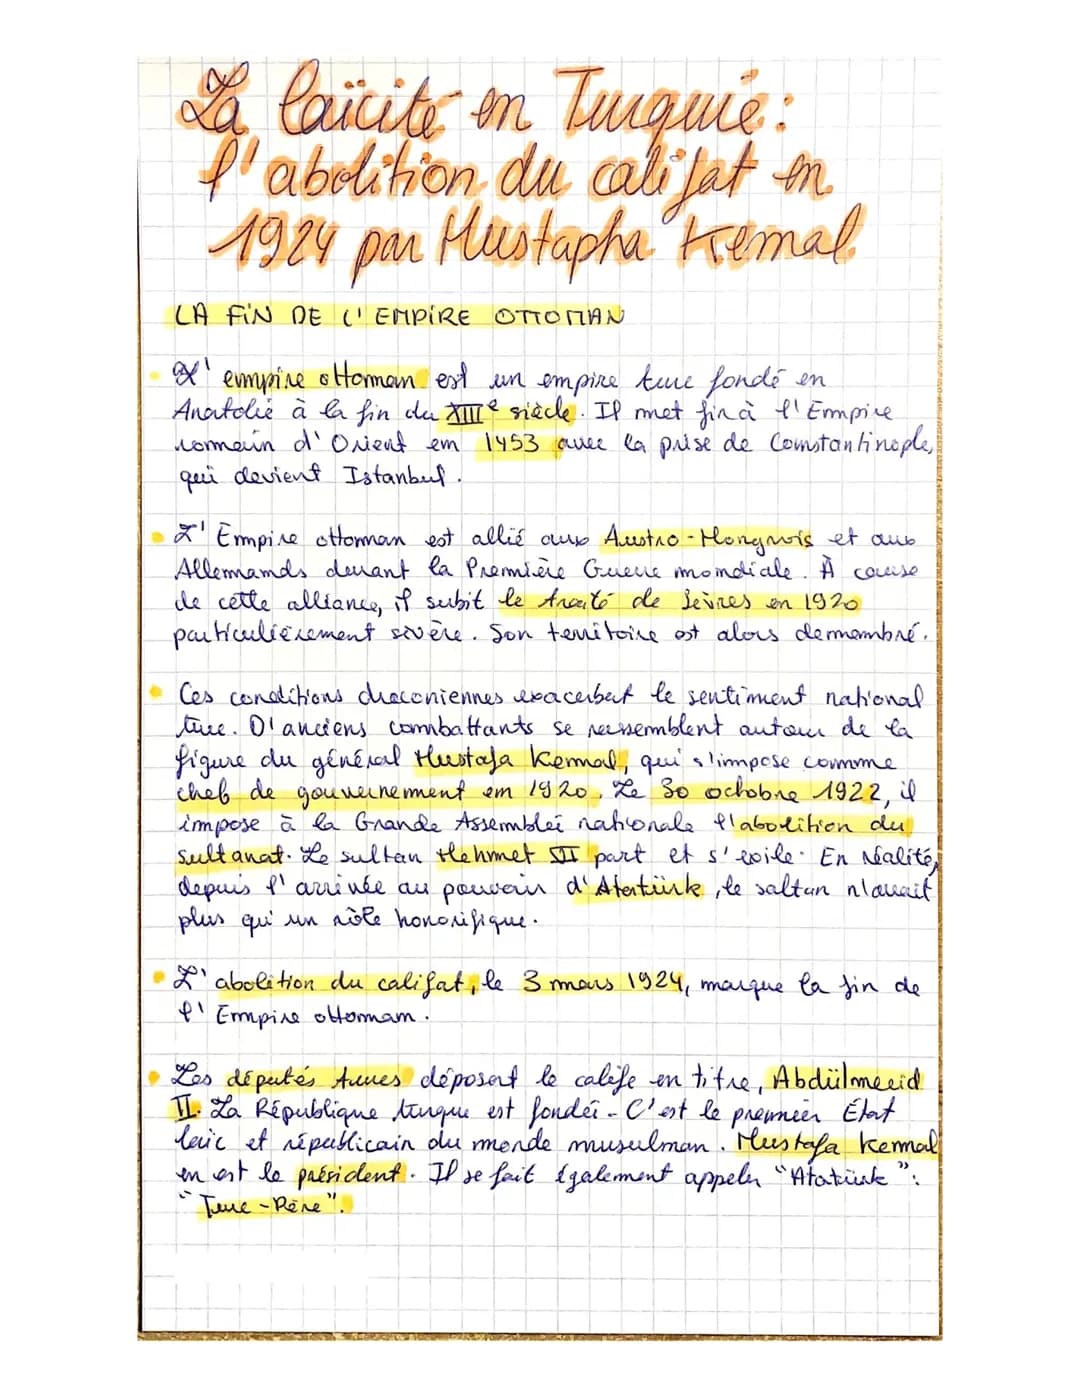 La laïcité en Turquie:
l'abolition du califat en
1924 par Mustapha Kemal
LA FIN DE L'EMPIRE OTTOMAN
L'empire ottoman est un empire turc fondé en
Anatolie à la fin du XIIIe siècle. Il met fin à l'Empire
romain d'Orient en 1453 avec la prise de Constantinople,
qui devient Istanbul.
L'Empire ottoman est allié aux Austro-Hongrois et aux
Allemands durant la Première Guerre mondiale. À cause
de cette alliance, il subit le traité de Sèvres en 1920
particulièrement sévère. Son territoire est alors démembré.
Ces conditions draconiennes exacerbent le sentiment national
turc. D'anciens combattants se rassemblent autour de la
figure du général Mustafa Kemal, qui s'impose comme
chef de gouvernement en 1920. Le 30 octobre 1922, il
impose à la Grande Assemblée nationale l'abolition du
sultanat. Le sultan Mehmet VI part et s'exile. En réalité,
depuis l'arrivée au pouvoir d'Atatürk, le saltan n'avait
plus qu'un rôle honorifique.
L'abolition du califat, le 3 mars 1924, marque la fin de
l'Empire ottoman.
Les députés turcs déposent le calife en titre, Abdülmecid
II. La République turque est fondée - C'est le premier État
laïc et républicain du monde musulman. Mustafa Kemal
en est le président. Il se fait également appeler "Atatürk":
"Turc-Père".